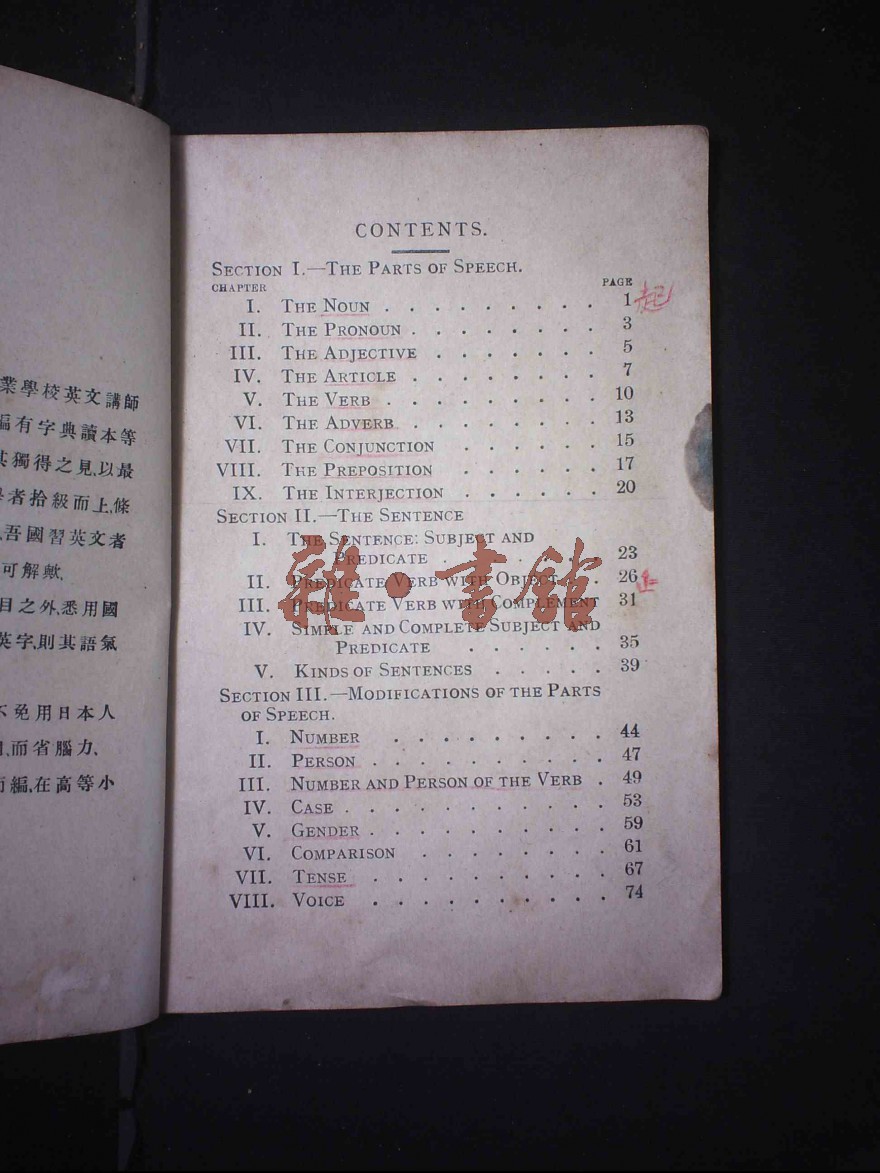 業學校英文講師
編有字典讀本等
其獨得之見,以最
學者拾級而上,條
吾國習英文者
可解歟,
目之外,悉用國
英字,則其語氣
不免用日本人
而省腦力、
而編,在高等小
CONTENTS.
SECTION I.—THE PARTS OF SPEECH.
CHAPTER PAGE
I. THE NOUN . . . . . . . . . . 1 起
II. THE PRONOUN . . . . . . . . . 3
III. THE ADJECTIVE . . . . . . . 5
IV. THE ARTICLE . . . . . . . . 7
V. THE VERB . . . . . . . . . 10
VI. THE ADVERB . . . . . . . . 13
VII. THE CONJUNCTION . . . . . . 15
VIII. THE PREPOSITION . . . . . . 17
IX. THE INTERJECTION . . . . . . 20
SECTION II.—THE SENTENCE
I. THE SENTENCE: SUBJECT AND
PREDICATE . . . . . . . 23
II. PREDICATE VERB WITH OBJECT . . 26 止
III. PREDICATE VERB WITH COMPLEMENT 31
IV. SIMPLE AND COMPLETE SUBJECT AND
PREDICATE . . . . . . 35
V. KINDS OF SENTENCES . . . . . 39
SECTION III.—MODIFICATIONS OF THE PARTS
OF SPEECH.
I. NUMBER . . . . . . . . . 44
II. PERSON . . . . . . . . . . 47
III. NUMBER AND PERSON OF THE VERB . 49
IV. CASE . . . . . . . . . . . 53
V. GENDER . . . . . . . . . . 59
VI. COMPARISON . . . . . . . . 61
VII. TENSE . . . . . . . . . . 67
VIII. VOICE . . . . . . . . . . 74
雜·書館